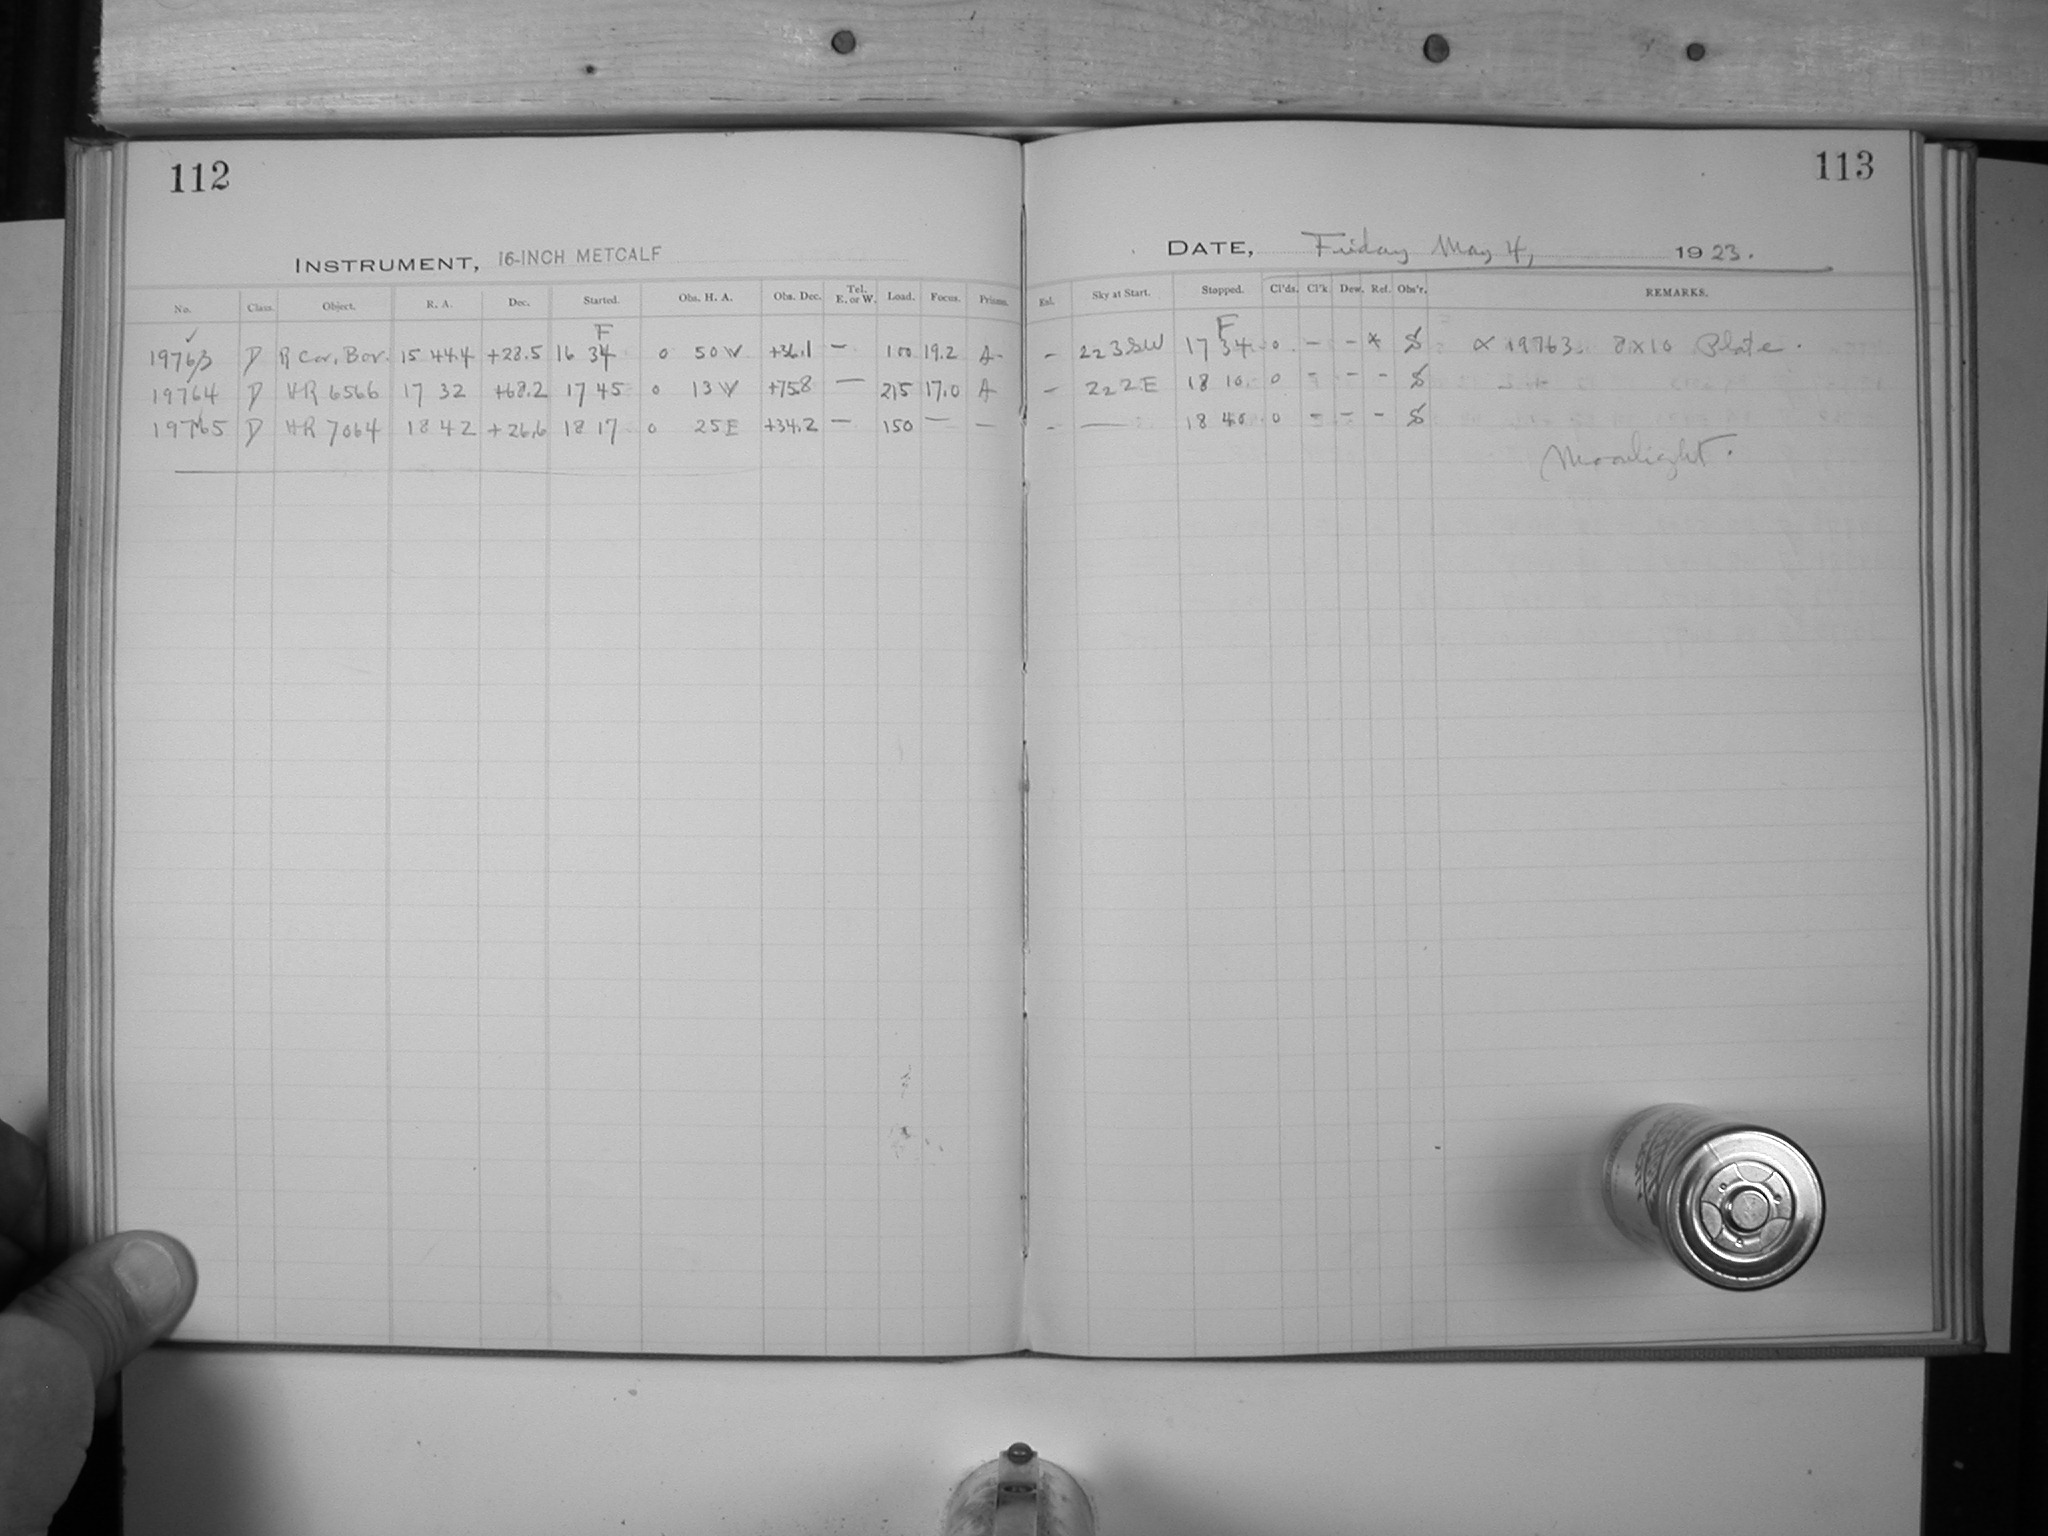 112
113
INSTRUMENT, 16-INCH METCALF
DATE, Friday May 4, 1923.
No. Class. Object. R. A. Dec. Started. Obs. H. A. Obs. Dec. Tel. E. or W. Load. Focus. Prisms. Enl. Sky at Start. Stopped. Cl'ds. Cl'k Dew. Ref. Obs'r. REMARKS.
F F
19763 D R Cor. Bor. 15 44.4 +28.5 16 34 0 50 W +36.1 — 100 19.2 A - - 223SW 17 34 0 - - * S ∝ 19763. 8x10 Plate.
19764 D HR 6566 17 32 +68.2 17 45 0 13 W +75.8 — 215 17.0 A - 222E 18 10 0 - - - S
19765 D HR 7064 18 42 +26.6 18 17 0 25 E +34.2 — 150 — — - — 18 40 0 - - - S
Moonlight.